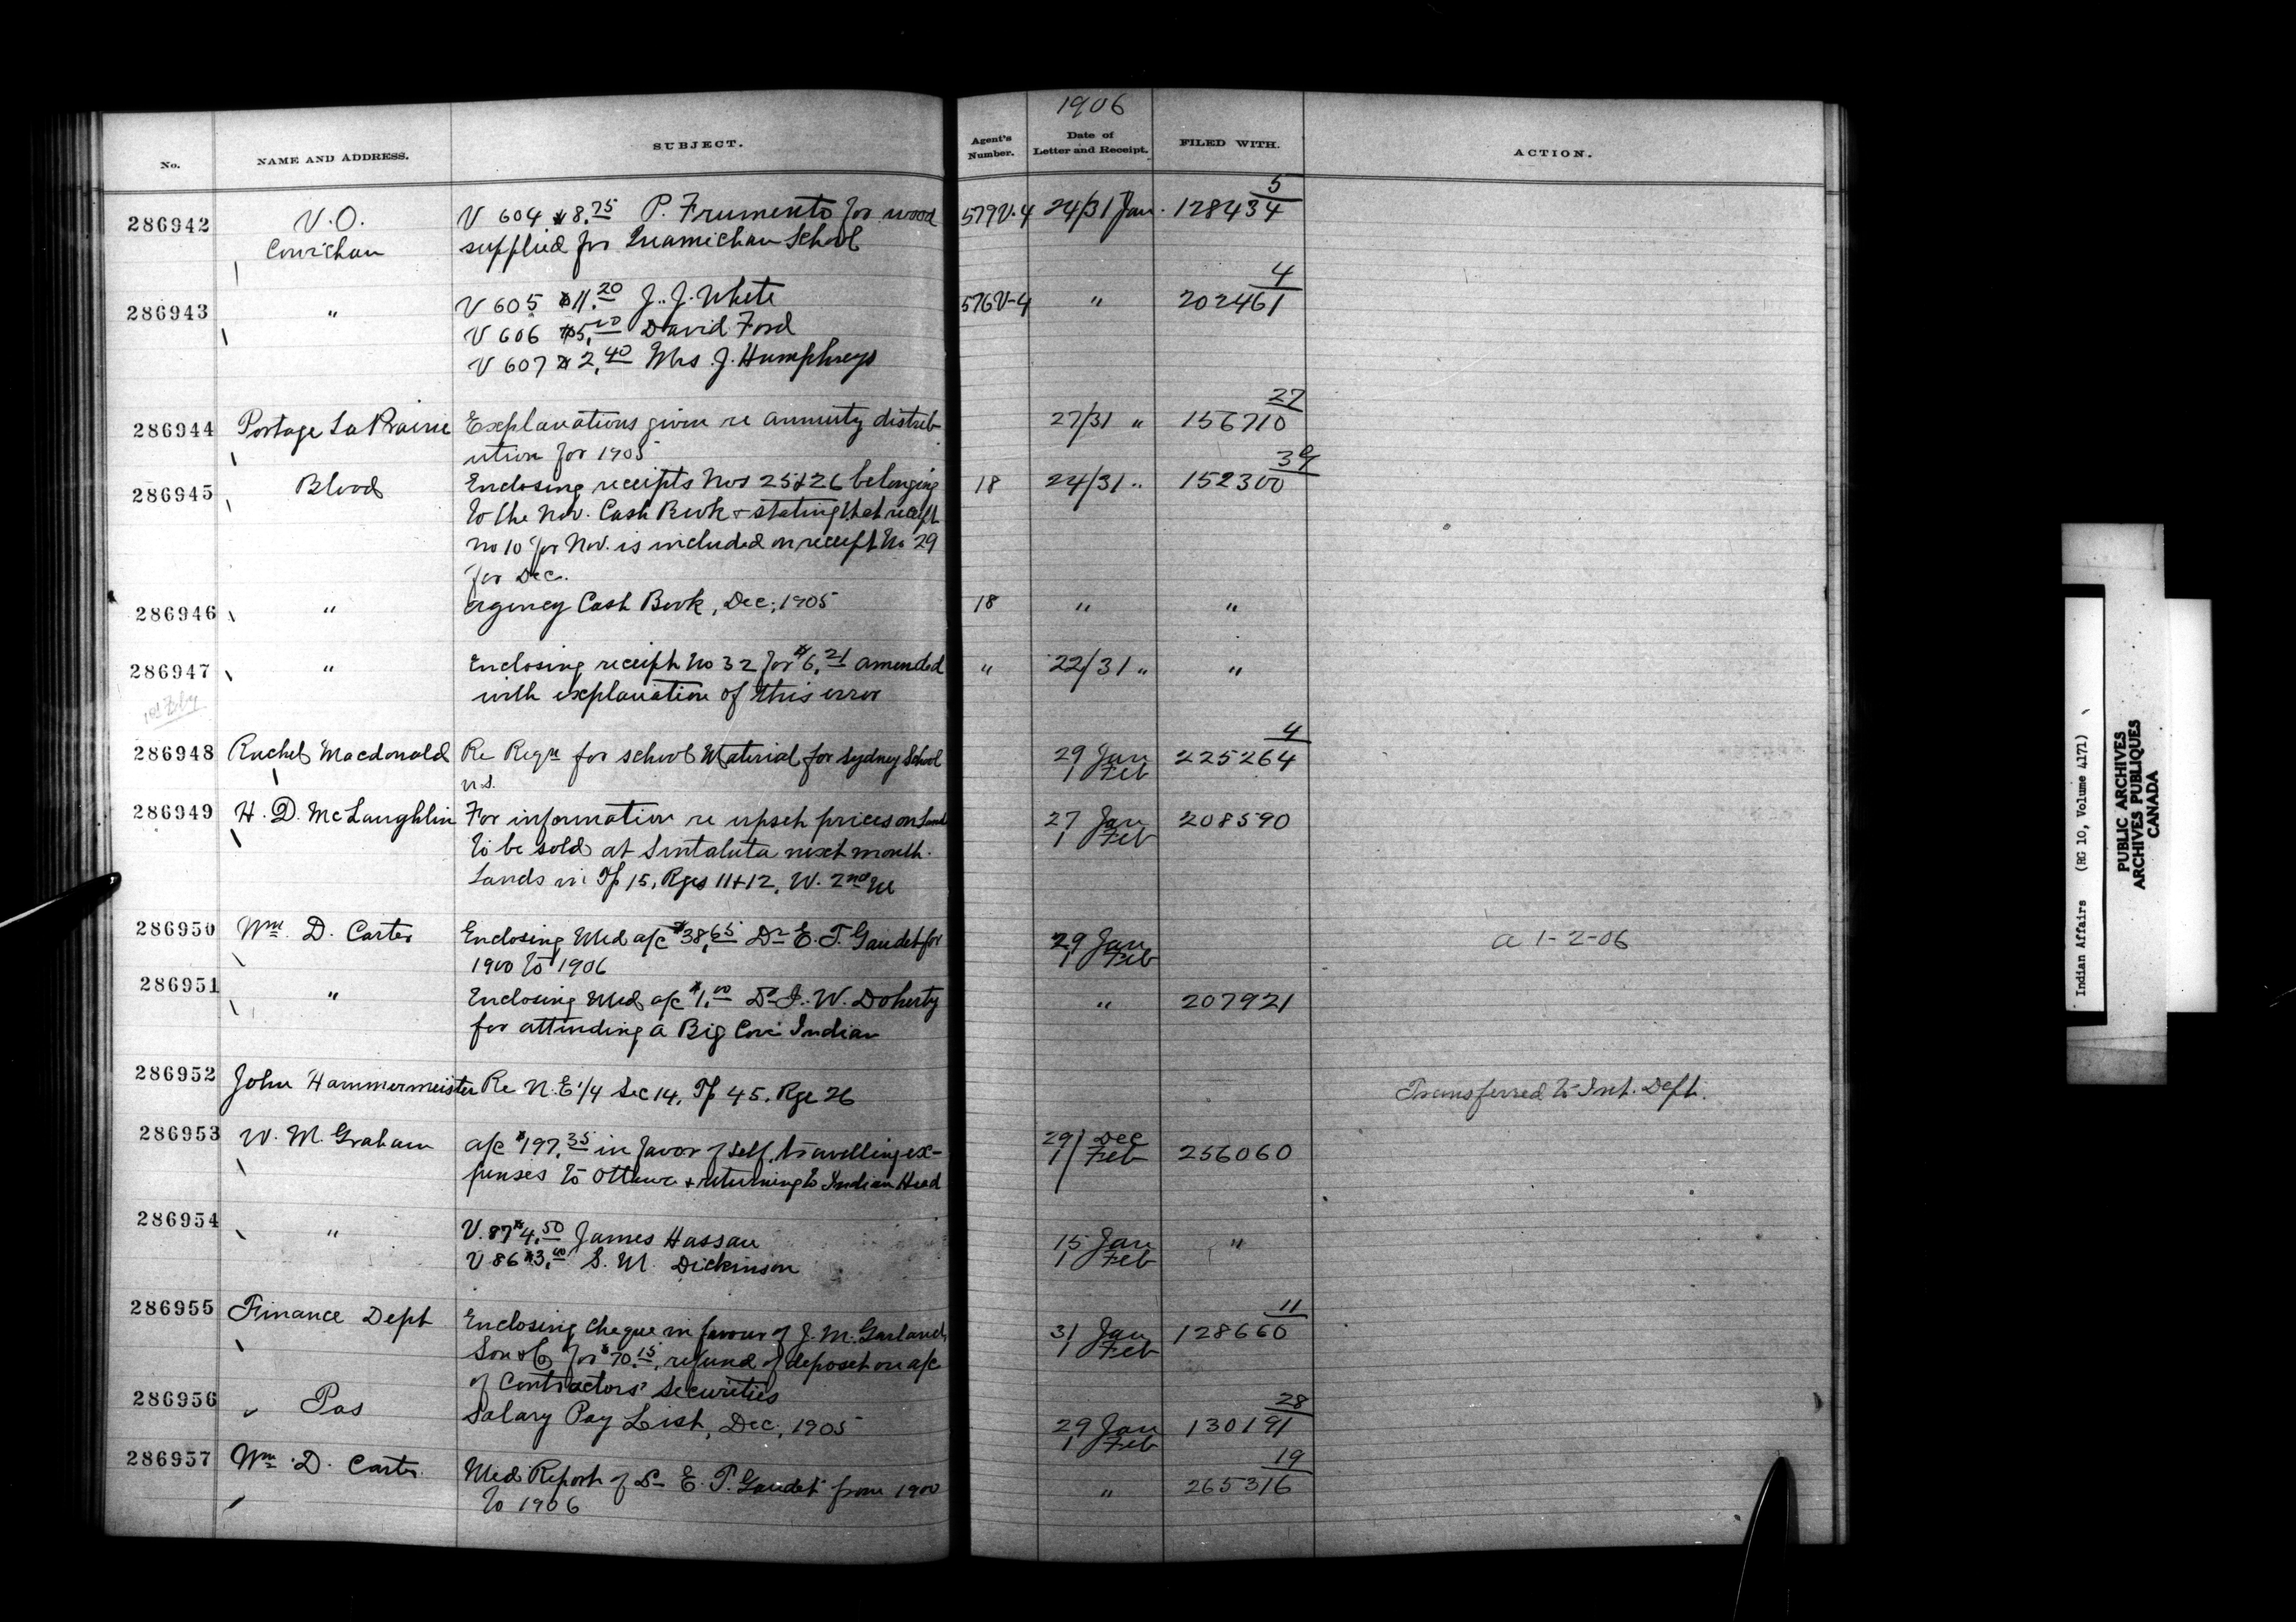 1906
No. NAME AND ADDRESS. SUBJECT. Agent's Number. Date of Letter and Receipt. FILED WITH. ACTION.
286942 V.O. V 604 $8.75 P. Frumento for wood 579V-4 24/31 Jan. 128434 5
Cowichan supplied for Quamichan School
286943 " V 605 $11.20 J. J. White 576V-4 " 202461 4
V 606 $5.00 David Ford
V 607 $2.40 Mrs J. Humphreys
286944 Portage La Prairie Explanations given re annuity distrib- 27/31 " 156710 27
ution for 1905
286945 Blood Enclosing receipts Nos 25 & 26 belonging 18 24/31 " 152300
to the Nov. Cash Book & stating that receipt
no 10 for Nov. is included on receipt No 29
for Dec.
286946 " Agency Cash Book, Dec, 1905 18 " "
286947 " Enclosing receipt No 32 for $6.21 amended " 22/31 " "
with explanation of this error
1st Feby
286948 Rachel Macdonald Re Reqn for school Material for Sydney School 29 Jan 1 Feb 225264 4
N.S.
286949 H. D. McLaughlin For information re upset prices on Land 27 Jan 1 Feb 208590
to be sold at Sintaluta next month.
Lands in Tp 15, Rges 11+12, W. 2nd M
286950 Wm. D. Carter Enclosing Med a/c $38.65 Dr E. T. Gaudet for 29 Jan 1 Feb a 1-2-06
1900 to 1906
286951 " Enclosing Med a/c $1.00 Dr J. W. Doherty " 207921
for attending a Big Cove Indian
286952 John Hammermeister Re N.E 1/4 Sec 14, Tp 45, Rge 26 Transferred to Int. Dept.
286953 W. M. Graham a/c $197.35 in favor of self, travelling ex- 29 Dec 1 Feb 256060
penses to Ottawa & returning to Indian Head
286954 " V. 87 $4.50 James Hassan 15 Jan 1 Feb "
V 86 $3.00 S. M. Dickinson
286955 Finance Dept Enclosing cheque in favour of J. M. Garland 31 Jan 1 Feb 128660 11
Son & Co for $70.15, refund of deposit on a/c
of Contractors' Securities
286956 Pas Salary Pay List, Dec, 1905 29 Jan 1 Feb 130191 28
286957 Wm. D. Carter Med Report of Dr E. T. Gaudet from 1900 " 265316 19
to 1906
Indian Affairs (RG 10, Volume 4171)
PUBLIC ARCHIVES
ARCHIVES PUBLIQUES
CANADA